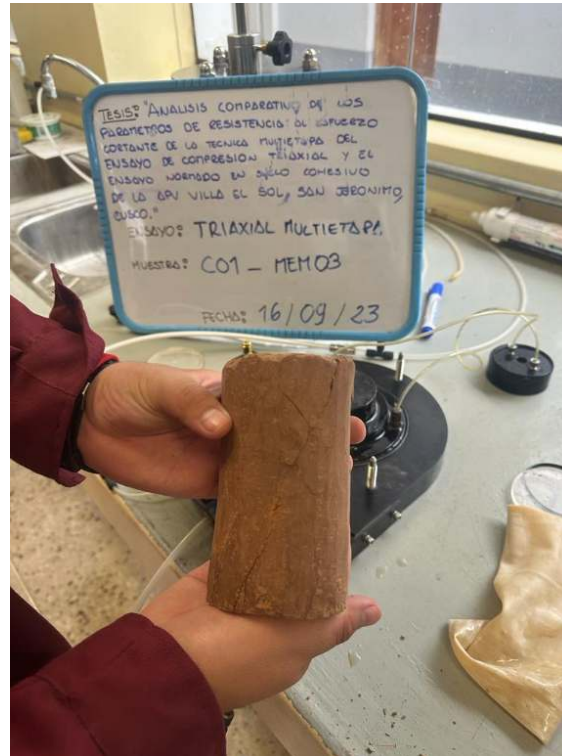 TESIS: "ANALISIS COMPARATIVO DE LOS
PARAMETROS DE RESISTENCIA AL ESFUERZO
CORTANTE DE LA TECNICA MULTIETAPA DEL
ENSAYO DE COMPRESION TRIAXIAL Y EL
ENSAYO NORMADO EN SUELO COHESIVO
DE LA APV VILLA EL SOL, SAN JERONIMO,
CUSCO."
ENSAYO: TRIAXIAL MULTIETAPA
MUESTRA: C01 - MEM03
FECHA: 16/09/23